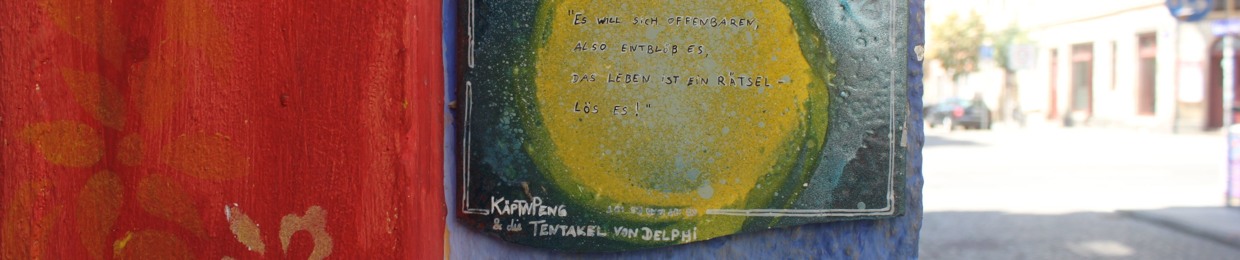 "ES WILL SICH OFFENBAREN,
ALSO ENTBLÖß ES,
DAS LEBEN IST EIN RÄTSEL -
LÖS ES!"
KÄPTN PENG
& die TENTAKEL VON DELPHI